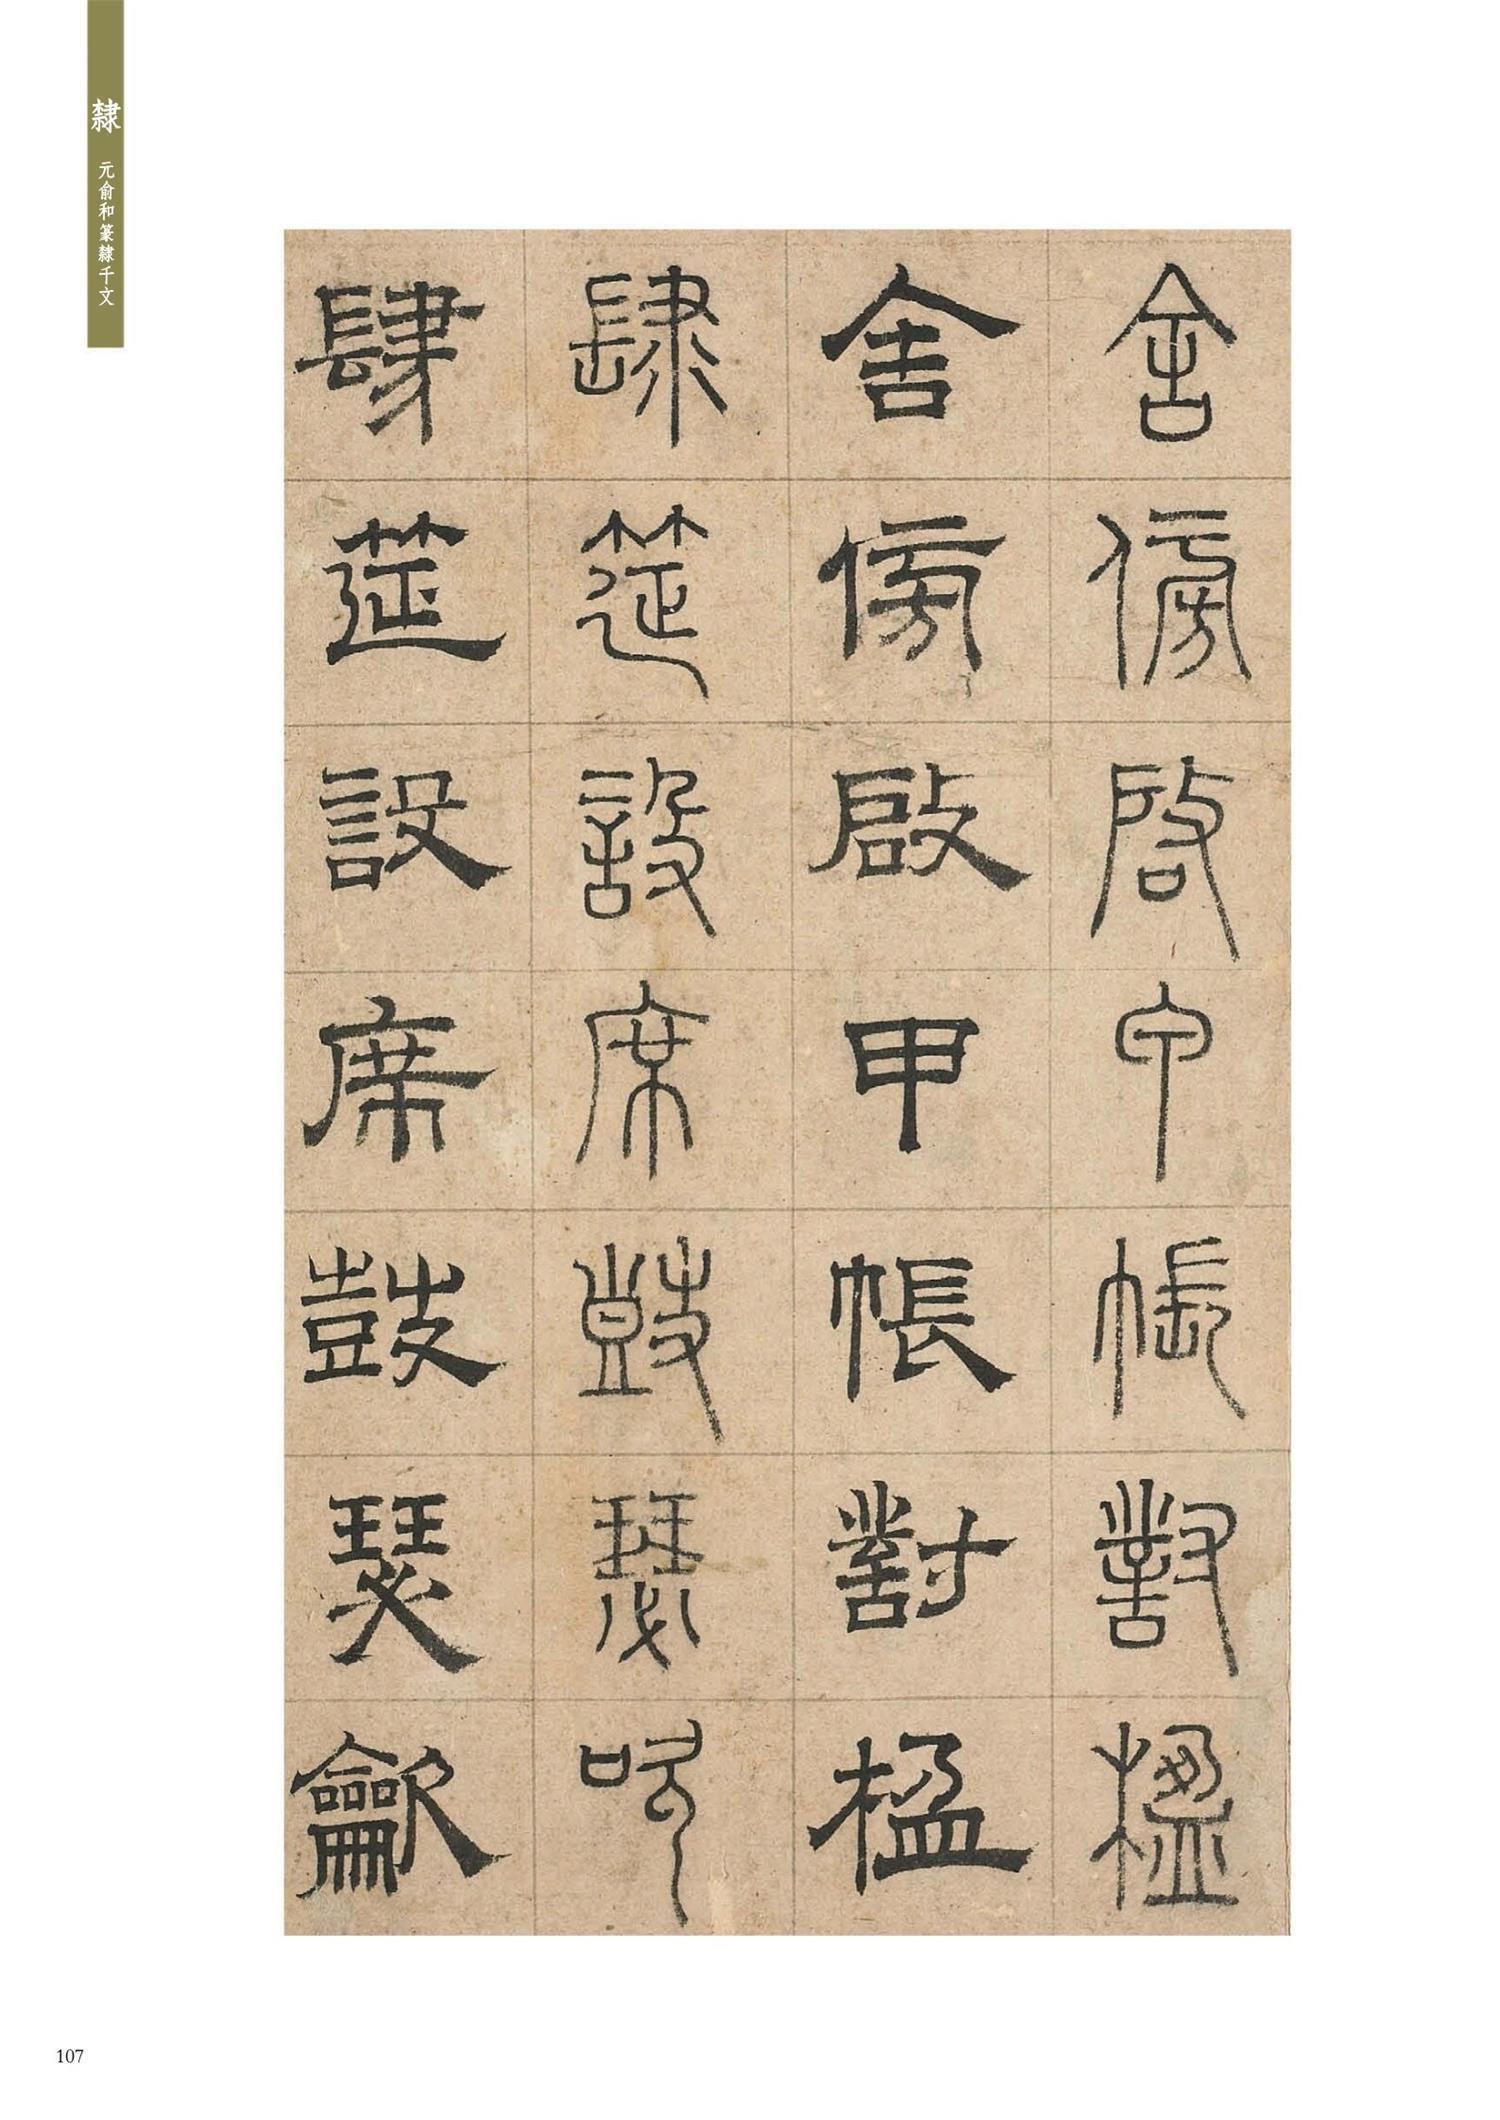 隸 元俞和篆隸千文
舍傍啟甲帳對楹
舍傍啟甲帳對楹
肆筵設席鼓瑟吹
肆筵設席鼓瑟龡
107